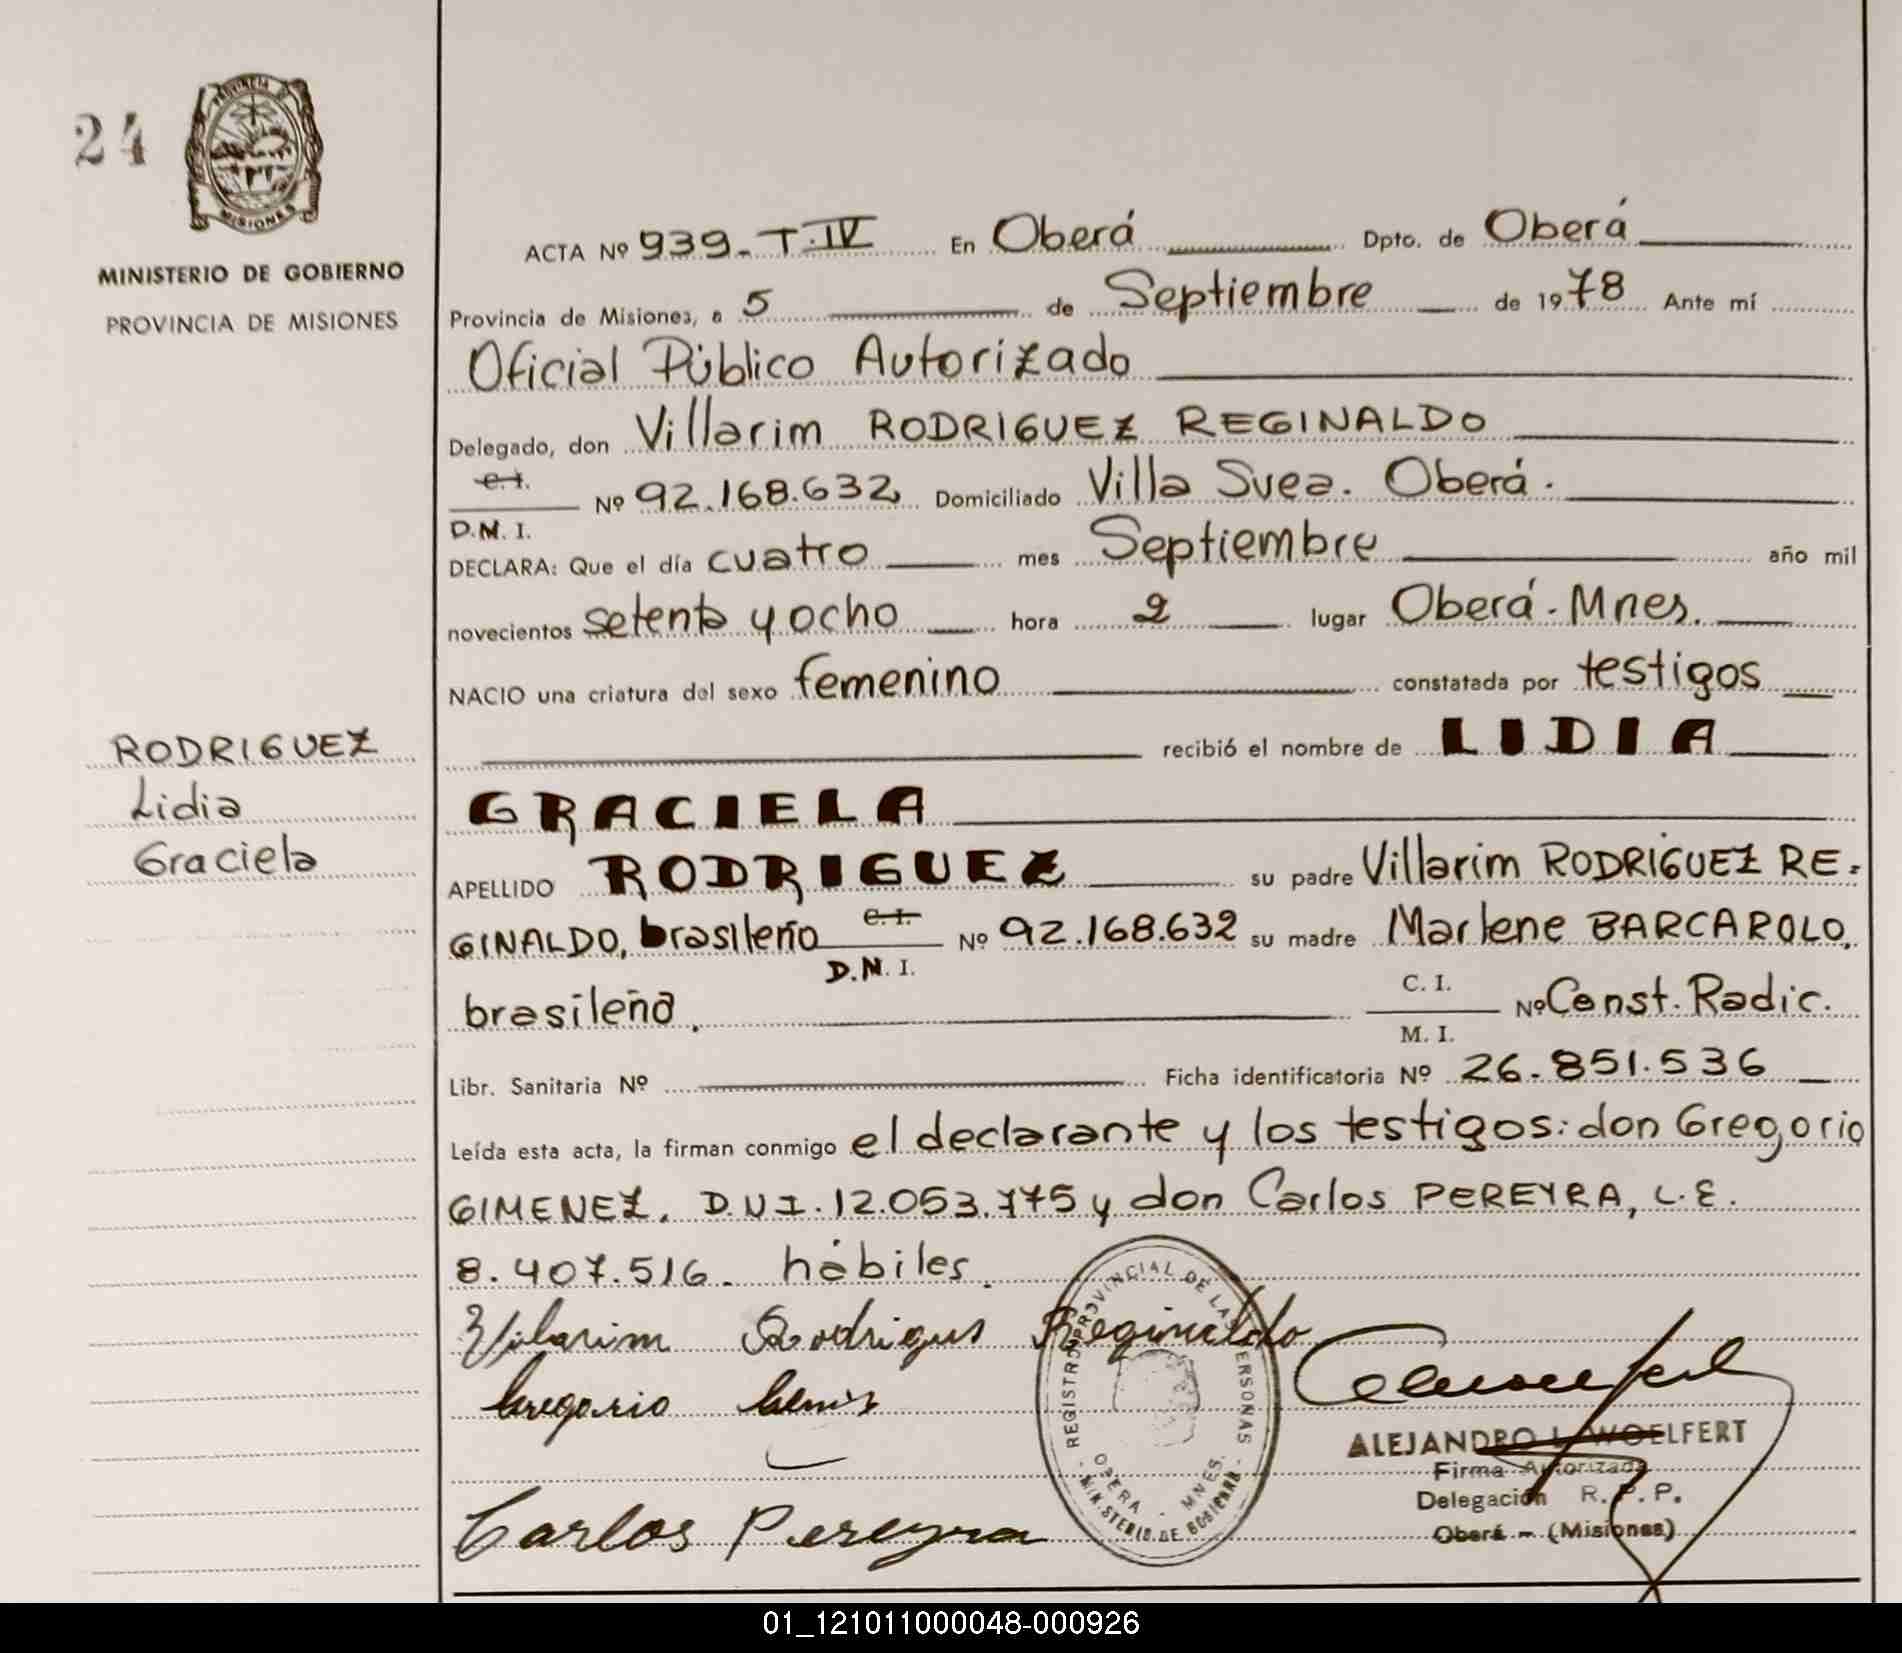 24
PROVINCIA DE
MISIONES
MINISTERIO DE GOBIERNO
PROVINCIA DE MISIONES
RODRIGUEZ
Lidia
Graciela
ACTA Nº 939-T.IV En Oberá Dpto. de Oberá
Provincia de Misiones, a 5 de Septiembre de 1978 Ante mí
Oficial Público Autorizado
Delegado, don Villarim RODRIGUEZ REGINALDO
C.I.
Nº 92.168.632 Domiciliado Villa Svea. Oberá.
D.N.I.
DECLARA: Que el día cuatro mes Septiembre año mil
novecientos setenta y ocho hora 2 lugar Oberá. Mnes.
NACIO una criatura del sexo femenino constatada por testigos
recibió el nombre de LIDIA
GRACIELA
APELLIDO RODRIGUEZ su padre Villarim RODRIGUEZ RE=
GINALDO, brasileño C.I. Nº 92.168.632 su madre Marlene BARCAROLO,
D.N.I.
brasileña. C. I. Nº Const. Radic.
M. I.
Libr. Sanitaria Nº Ficha identificatoria Nº 26.851.536
Leída esta acta, la firman conmigo el declarante y los testigos: don Gregorio
GIMENEZ. D.N.I. 12.053.775 y don Carlos PEREYRA, L.E.
8.407.516. hábiles.
Vilarim Rodrigus Reginaldo
Gregorio
Carlos Pereyra
REGISTRO PROVINCIAL DE LAS PERSONAS
OBERA - MNES.
MINISTERIO DE GOBIERNO
ALEJANDRO L. WOELFERT
Firma Autorizada
Delegación R. P. P.
Oberá - (Misiones)
01_121011000048-000926